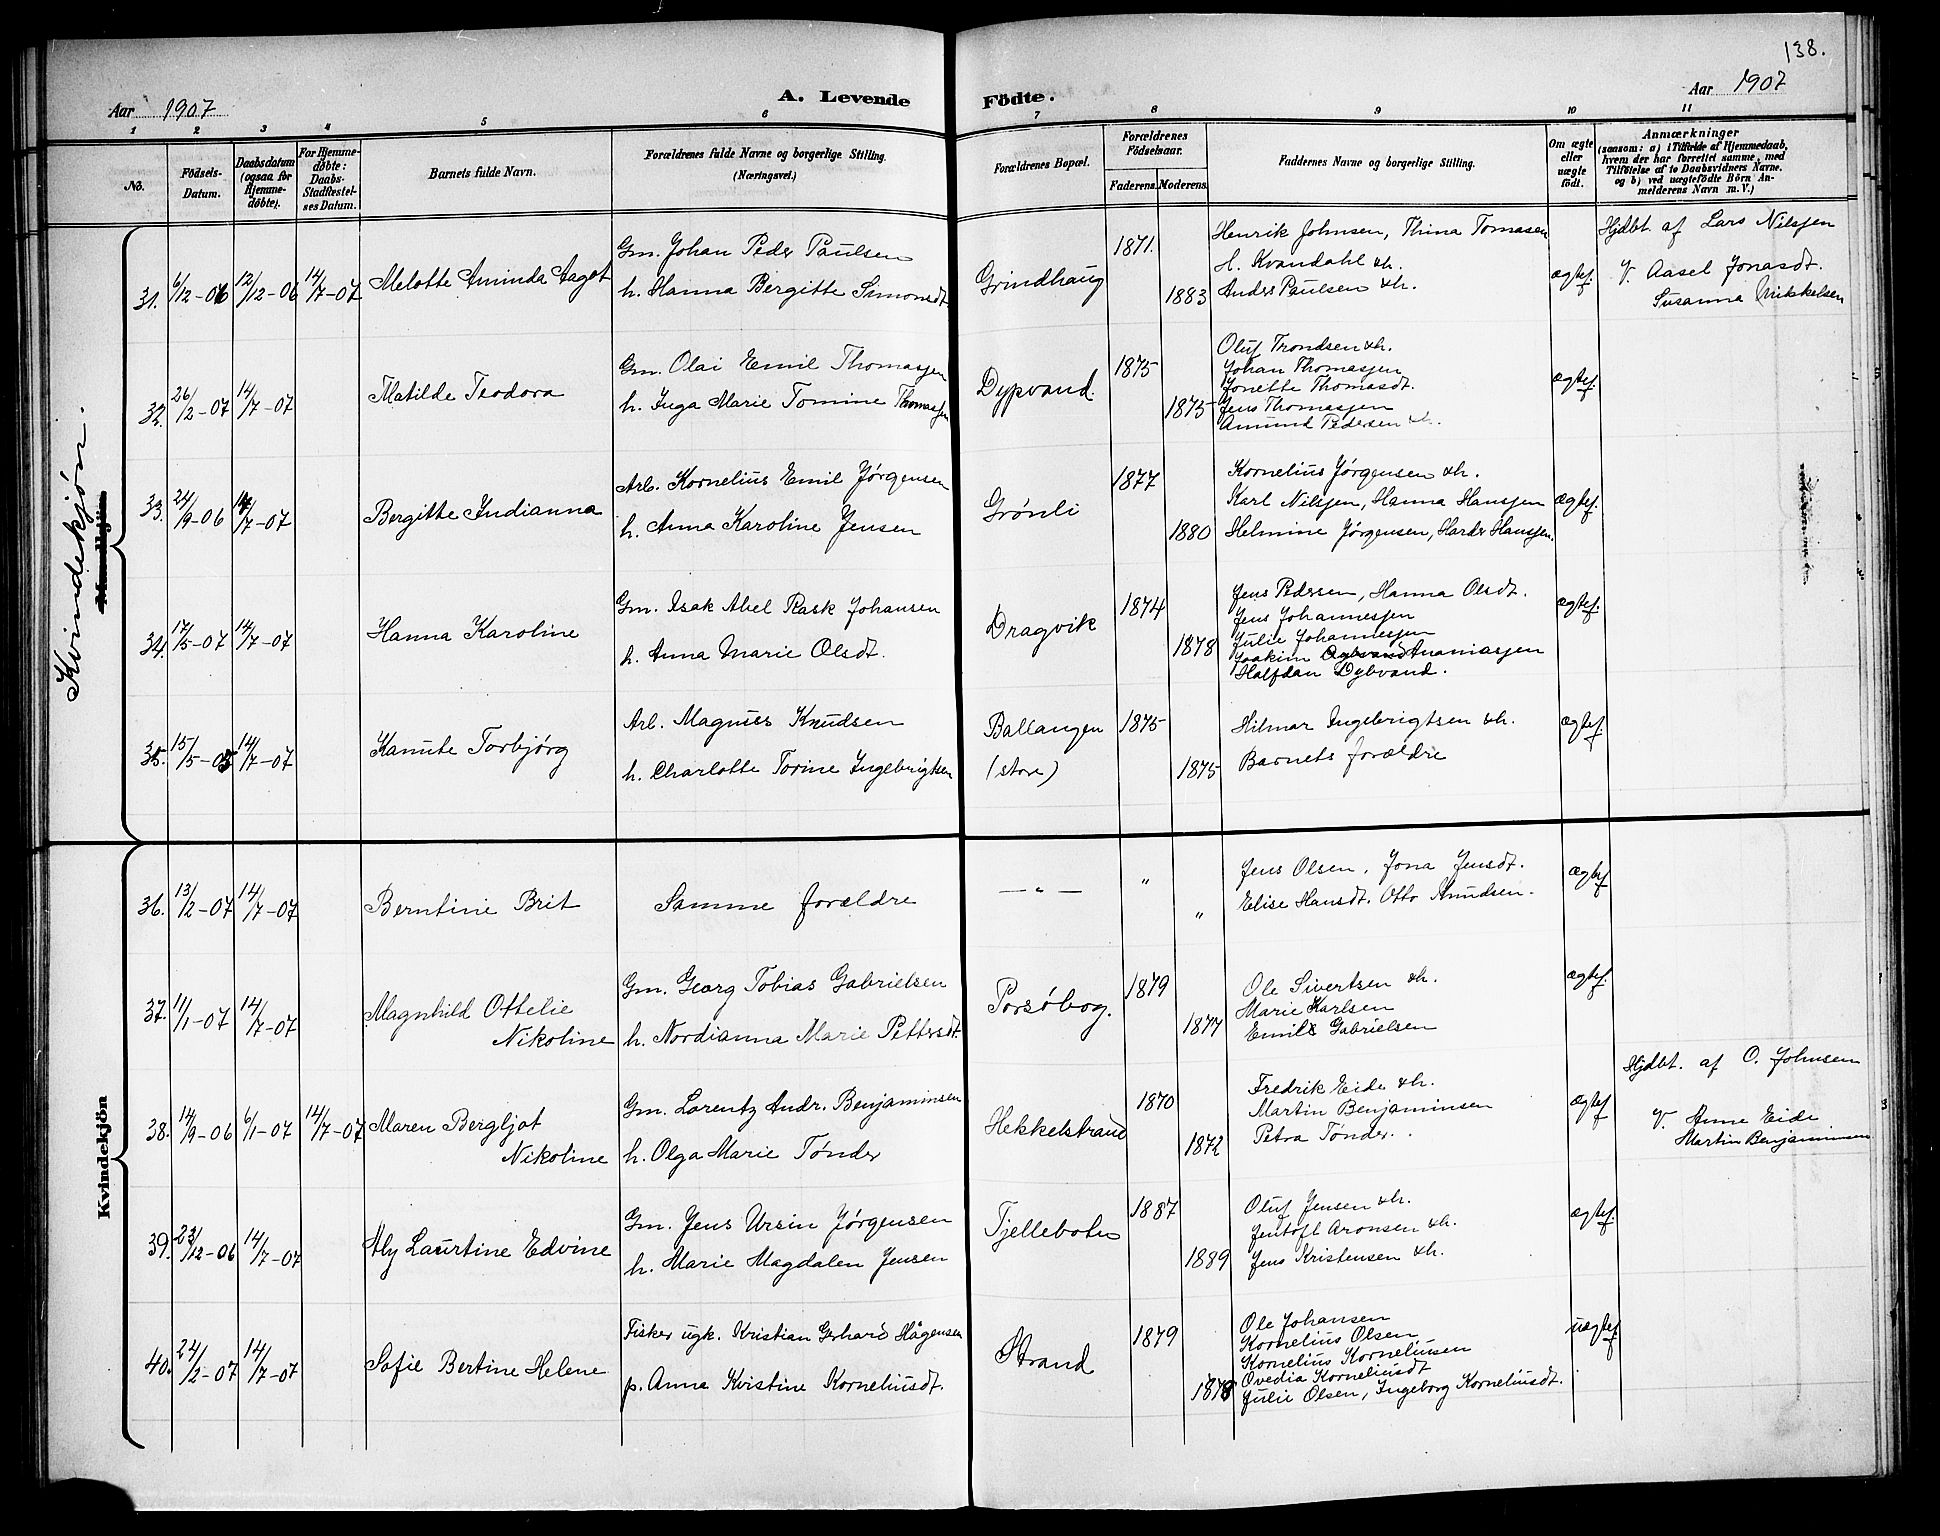 138.
Aar 1907 A. Levende Födte. Aar 1907
1 2 3 4 5 6 7 8 9 10 11
No. Födsels-Datum. Daabsdatum (ogsaa for Hjemme-döbte). For Hjemme-döbte: Daabs-Stadfæstel-ses Datum. Barnets fulde Navn. Forældrenes fulde Navne og borgerlige Stilling. (Næringsvei.) Forældrenes Bopæl. Forældrenes Födselsaar. Faderens. Moderens. Faddernes Navne og borgerlige Stilling. Om ægte eller uægte födt. Anmærkninger (saasom: a) i Tilfælde af Hjemmedaab, hvem der har forrettet samme, med Tilföielse af to Daabsvidners Navne, og b) ved uægtefödte Börn An-melderens Navn m. V.)
Kvindekjøn.
Mandkjön
31. 6/12-06 12/12-06 14/7-07 Melotte Aminda Aagot
Gm. Johan Peder Paulsen
h. Hanna Bergitte Simonsdt.
Grindhaug 1871. 1883
Henrik Johnsen, Thina Tomasen
H. Kvandahl &h.
Anders Paulsen &h.
ægtef.
Hjdbt. af Lars Nilsjen
V. Aasel Jonasdt.
Susanna Mikkelsen
32. 26/2-07 14/7-07 Matilde Teodora
Gm. Olai Emil Thomasjen
h. Inga Marie Tomine Thomasjen
Dypvand. 1875 1875
Oluf Trondsen &h.
Johan Thomasjen
Jonette Thomasdt.
Jens Thomasjen
Amund Pedersen &h.
ægtef.
33. 24/9-06 14/7-07 Bergitte Indianna
Arb. Kornelius Emil Jørgensen
h. Anna Karoline Jensen
Grønli 1877 1880
Kornelius Jørgensen &h.
Karl Nilsjen, Hanna Hansjen
Helmine Jørgensen, Harder Hansjen.
ægtef.
34. 17/5-07 14/7-07 Hanna Karoline
Gm. Isak Abel Rask Johansen
h. Anna Marie Olsdt.
Dragvik 1874 1878
Jens Pedersen, Hanna Olsdt.
Jens Johannesjen
Julie Johannesjen
Joakim Ananiasjen
Halfdan Dybvand.
ægtef.
35. 15/5-05 14/7-07 Kanute Torbjørg
Arb. Magnus Knudsen
h. Charlotte Torine Ingebrigtsen
Ballangen
(store)
1875 1875
Hilmar Ingebrigtsen &h.
Barnets forældre
ægtef.
Kvindekjön
36. 13/2-07 14/7-07 Berntine Brit
Samme forældre
— „ — „ „
Jens Olsen, Jona Jensdt.
Elise Hansdt. Otto Knudsen.
ægtef
37. 11/1-07 14/7-07 Magnhild Ottelie
Nikoline
Gm. Georg Tobias Gabrielsen
h. Nordianna Marie Pettersdt.
Porsøbog. 1879 1877
Ole Sivertsen &h.
Marie Karlsen
Emil Gabrielsen
ægtef.
38. 14/9-06 6/1-07 14/7-07 Maren Bergljot
Nikoline
Gm. Lorentz Andr. Benjaminsen
h. Olga Marie Tønder
Hekkelstrand 1870 1872
Fredrik Eide &h.
Martin Benjaminsen
Petra Tønder.
ægtef
Hjdbt. af O. Johnsen
V. Anne Eide
Martin Benjaminsen
39. 23/12-06 14/7-07 Aly Laurtine Edvine
Gm. Jens Ursin Jørgensen
h. Marie Magdalen Jensen
Tjellebotn 1887 1889
Oluf Jensen &h.
Jentoft Aronsen &h.
Jens Kristensen &h.
ægtef.
40. 24/2-07 14/7-07 Sofie Bertine Helene
Fisker ugk. Kristian Gerhard Hågensen
p. Anna Kristine Korneliusdt.
Strand 1879 1878
Ole Johansen
Kornelius Olsen
Kornelius Korneliusen
Ovedia Korneliusdt
Julie Olsen, Ingeborg Korneliusdt.
uægtef.